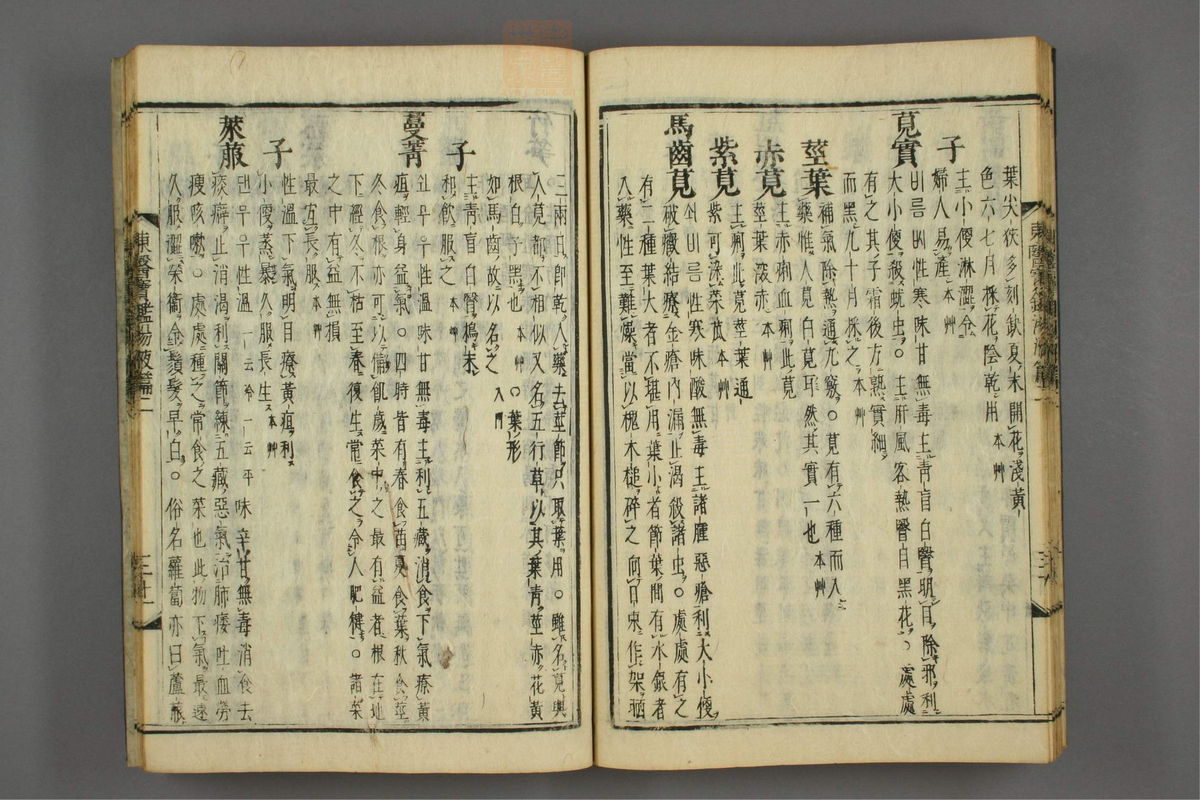 葉尖狹多刻缺夏末開花淺黃
色六七月採花陰乾用本艸
子
主小便淋澁令
婦人易產本艸
莧實
비름ᄡᅵ性寒味甘無毒主靑盲白瞖明目除邪利
大小便殺蚘虫○主肝風客熱瞖目黑花○處處
有之其子霜後方熟實細
而黑九十月採之本艸
莖葉
補氣除熱通九竅○莧有六種而入
藥惟人莧白莧耳然其實一也本艸
赤莧
主赤痢血痢此莧
莖葉深赤本艸
紫莧
主痢此莧莖葉通
紫可染菜苽本艸
馬齒莧
쇠비름性寒味酸無毒主諸腫惡瘡利大小便
破癥結療金瘡內漏止渴殺諸虫○處處有之
有二種葉大者不堪用葉小者節葉間有水銀者
入藥性至難燥當以槐木槌碎之向日東作架晒
三兩日卽乾入藥去莖節只取葉用○雖名莧與
人莧都不相似又名五行草以其葉靑莖赤花黃
根白子黑也本艸○葉形
如馬齒故以名之入門
子
主靑盲白瞖搗末
和飮服之本艸
蔓菁
쉰무우性溫味甘無毒主利五藏消食下氣療黃
疸輕身益氣○四時皆有春食苗夏食葉秋食莖
冬食根亦可以備飢歲菜中之最有益者根在地
下經久不枯至春復生常食之令人肥健○諸菜
之中有益無損
最宜長服本艸
子
性溫下氣明目療黃疸利
小便蒸暴久服長生本艸
萊菔
댄무우性溫一云冷一云平味辛甘無毒消食去
痰癖止消渴利關節練五藏惡氣治肺痿吐血勞
瘦咳嗽○處處種之常食之菜也此物下氣最速
久服澁榮衛令鬚髮早白○俗名蘿蔔亦曰蘆菔
東醫寶鑑湯液篇二
東醫寶鑑湯液篇二